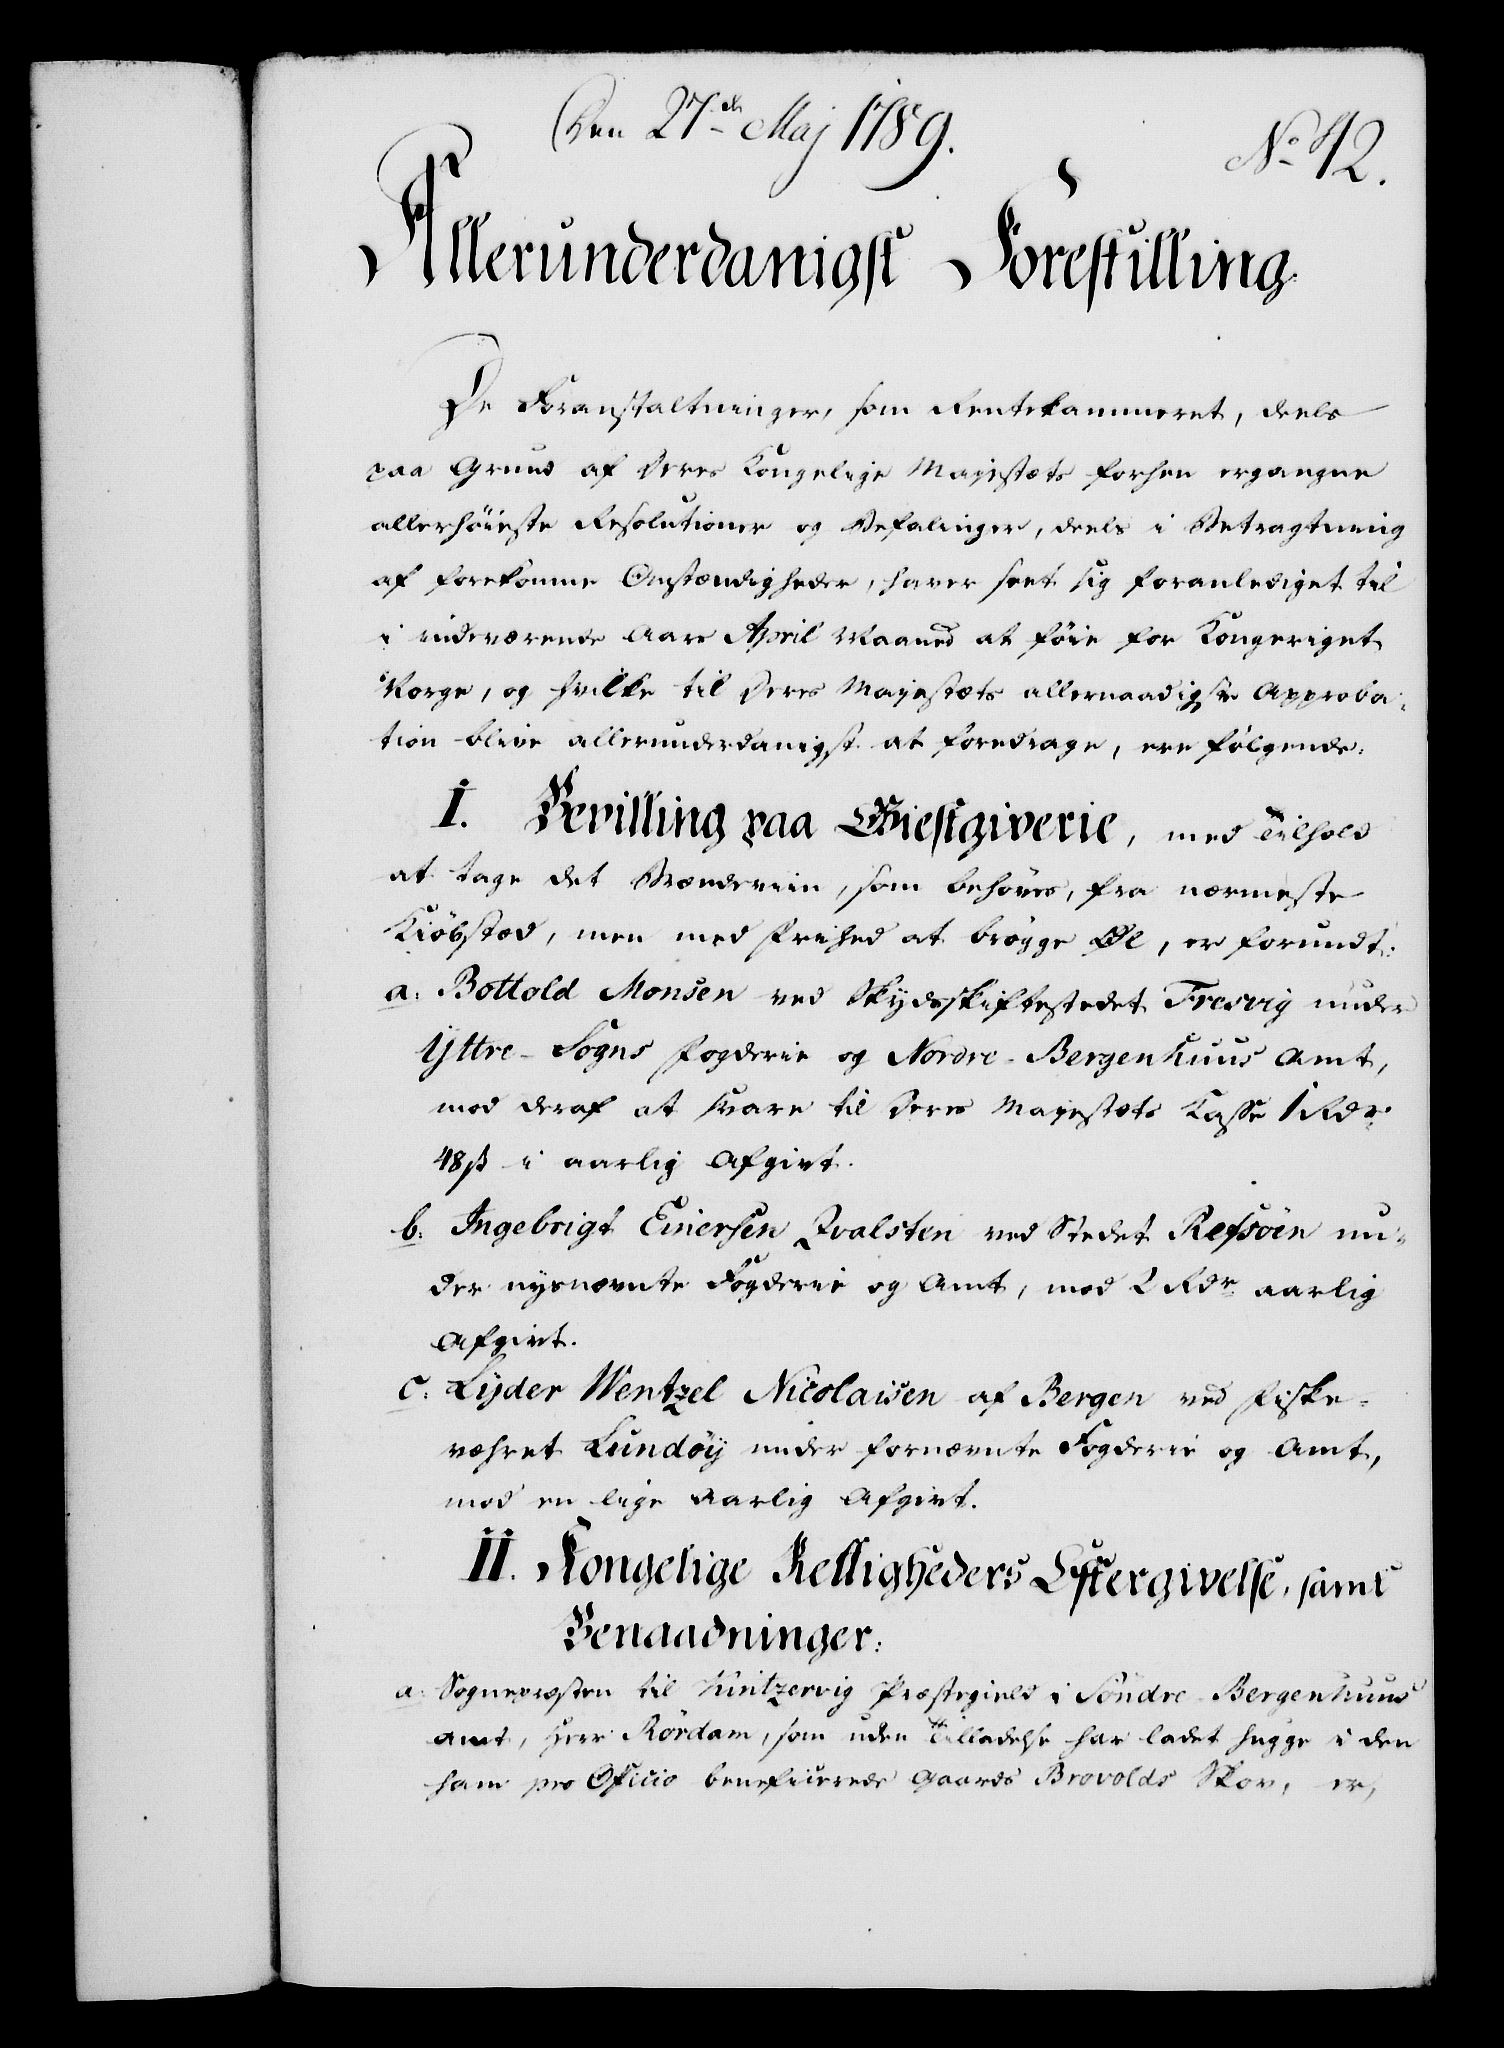 Den 27de Maj 1789.
No 42.
Allerunderdanigst Forestilling.
De Foranstaltninger, som Rentekammeret, deels
paa Grund af Deres Kongelige Majestæts forhen ergangne
allerhöieste Resolutioner og Befalinger, deels i Betragtning
af forekomne Omstændigheder, haver seet sig foranlediget til
i indeværende Aars April Maaned at föie for Kongeriget
Norge, og hvilke til Deres Majestæts allernaadigste Approba-
tion blive allerunderdanigst at foredrage, ere fölgende:
I. Bevilling paa Giestgiverie, med Tilhold
at tage det Brændeviin, som behöves, fra nærmeste
Kiöbstæd, men med Frihed at brögge Öl, er forundt:
a. Bottold Monsen ved Skydsskiftestedet Fresvig under
Yttre-Sogns Fogderie og Nordre-Bergenhuus Amt,
mod deraf at svare til Deres Majestæts Kasse 1 Rdr
48 ß i aarlig Afgivt.
b. Ingebrigt Einersen Qvalsten ved Stedet Refsöen un-
der nysnævnte Fogderie og Amt, mod 2 Rdr aarlig
Afgivt.
c. Lyder Wentzel Nicolaisen af Bergen ved Fiske-
væhret Lundöy under fornævnte Fogderie og Amt,
mod en lige aarlig Afgivt.
II. Kongelige Rettigheders Eftergivelse, samt
Benaadninger:
a. Sognepræsten til Kintzervig Præstegield i Söndre-Bergenhuus
Amt, Herr Rördam, som uden Tilladelse har ladet hugge i den
ham pro Officio beneficerede Gaards Brovolds Skov, er,